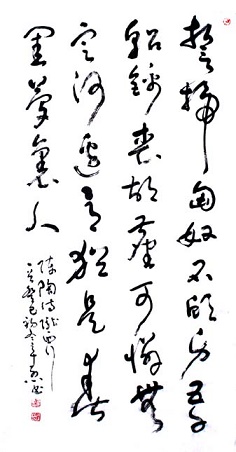 誓掃匈奴不顧身五千
貂錦喪胡塵可憐無
定河邊骨猶是春
閨夢裏人
陳陶詩隴西行